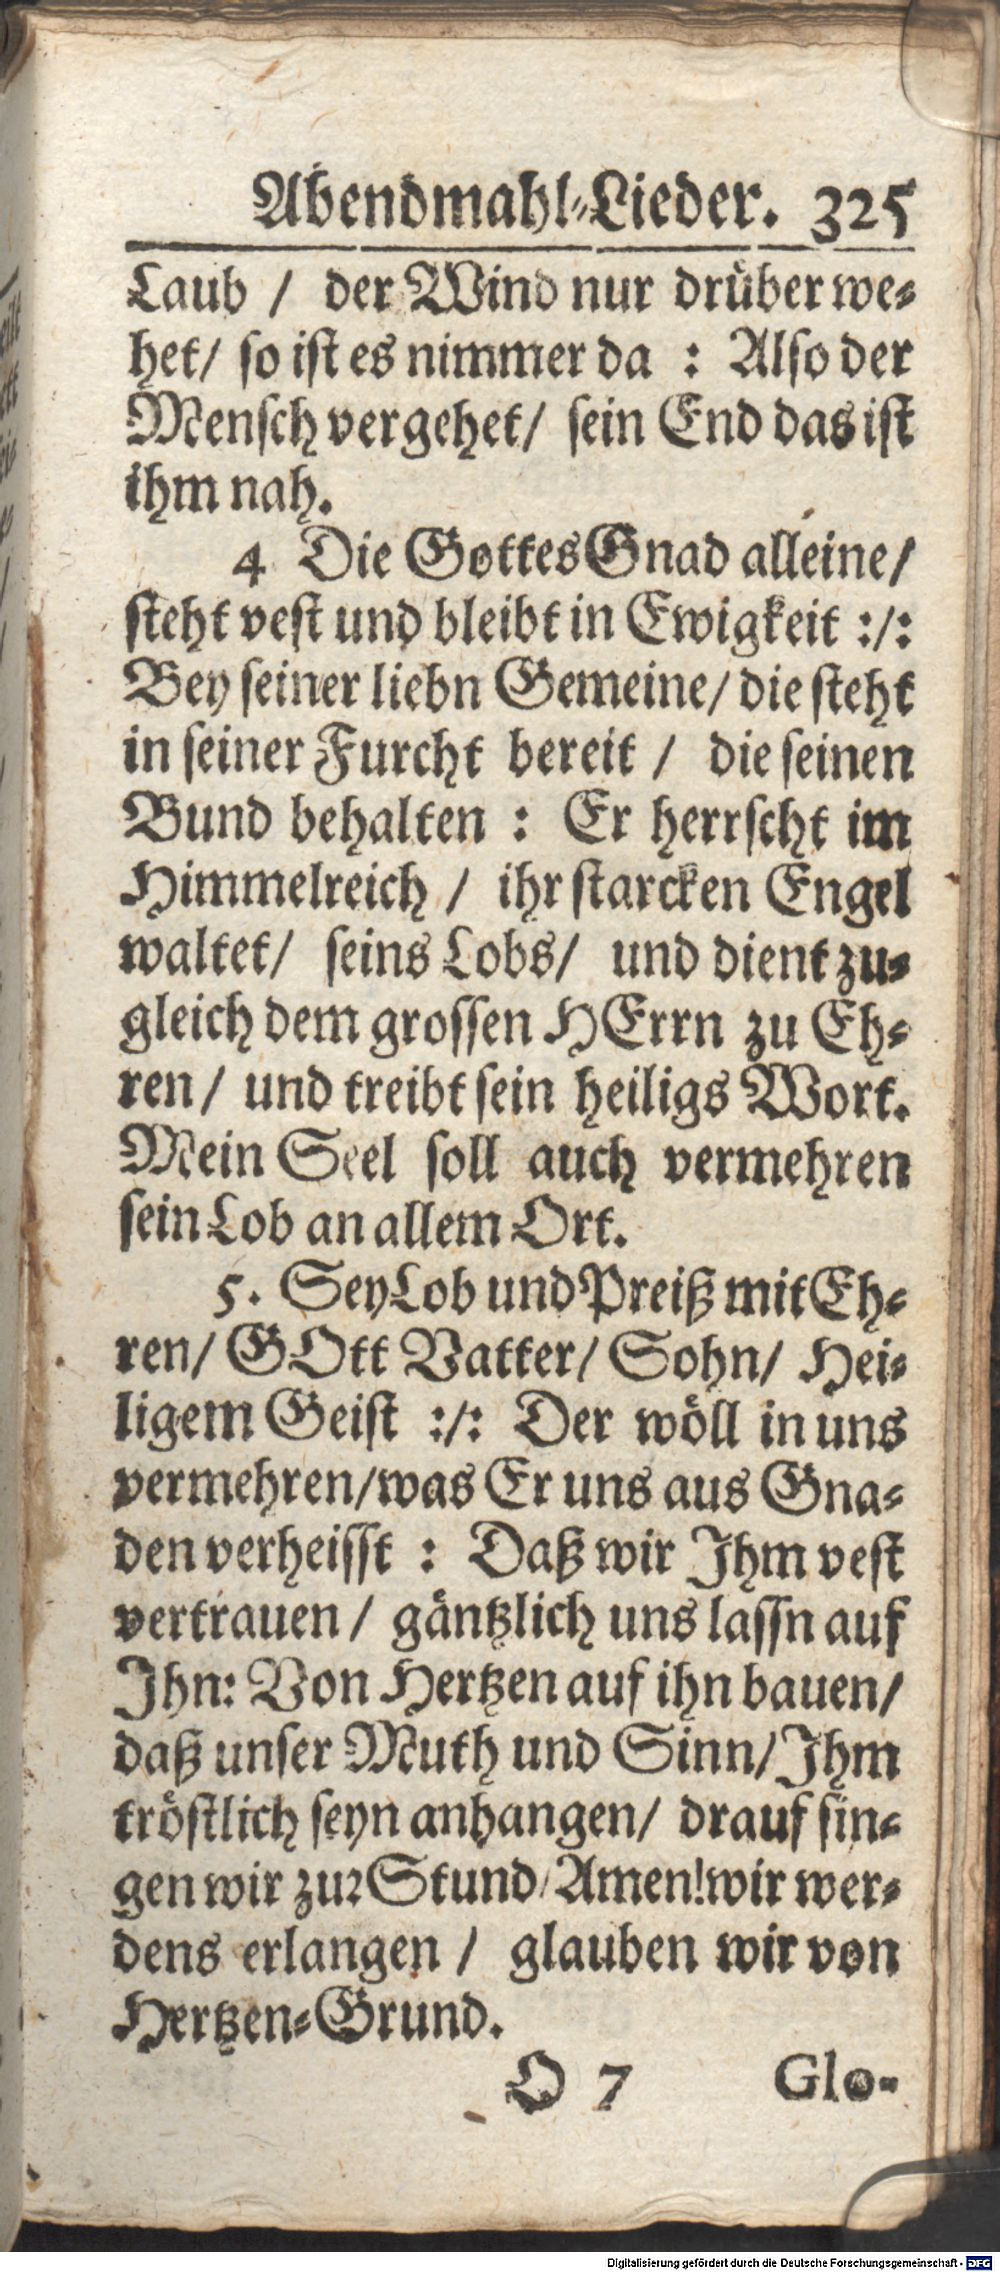 Abendmahl-Lieder. 325
Laub / der Wind nur drüber we-
het/ so ist es nimmer da : Also der
Mensch vergehet/ sein End das ist
ihm nah.
4 Die Gottes Gnad alleine/
steht vest und bleibt in Ewigkeit :/:
Bey seiner liebn Gemeine/ die steht
in seiner Furcht bereit / die seinen
Bund behalten : Er herrscht im
Himmelreich / ihr starcken Engel
waltet/ seins Lobs/ und dient zu-
gleich dem grossen HErrn zu Eh-
ren/ und treibt sein heiligs Wort.
Mein Seel soll auch vermehren
sein Lob an allem Ort.
5. Sey Lob und Preiß mit Eh-
ren/ GOtt Vatter/ Sohn/ Hei-
ligem Geist :/: Der wöll in uns
vermehren/was Er uns aus Gna-
den verheisst : Daß wir Ihm vest
vertrauen / gäntzlich uns lassn auf
Ihn: Von Hertzen auf ihn bauen/
daß unser Muth und Sinn/Ihm
tröstlich seyn anhangen/ drauf sin-
gen wir zur Stund/Amen!wir wer-
dens erlangen / glauben wir von
Hertzen-Grund.
O 7 Glo-
Digitalisierung gefördert durch die Deutsche Forschungsgemeinschaft - DFG